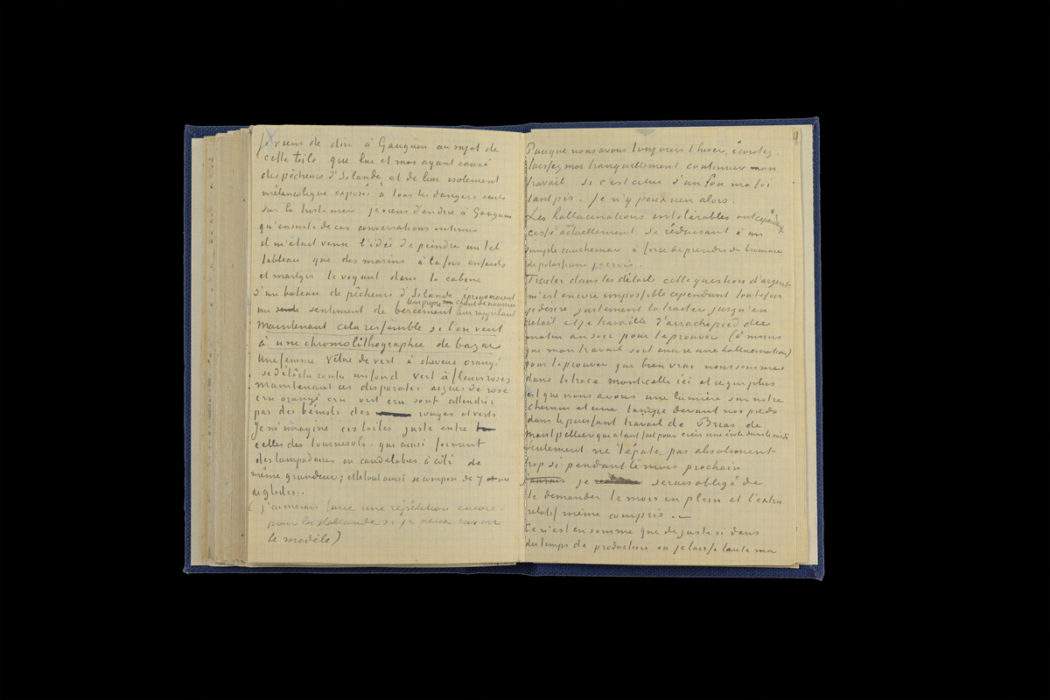 Je viens de dire à Gauguin au sujet de
cette toile que lui et moi ayant causé
des pêcheurs d'Islande et de leur isolement
mélancolique exposés à tous les dangers seuls
sur la triste mer je viens d'en dire à Gauguin
qu'ensuite de ces conversations intimes
il m'était venu l'idée de peindre un tel
tableau que des marins à la fois enfants
et martyrs le voyant dans la cabine
d'un bateau de pêcheurs d'Islande éprouveraient
un sentiment de bercement leur rappelant
leur propre chant de nourrice
Maintenant cela ressemble si l'on veut
à une chromolithographie de bazar
Une femme vêtue de vert à cheveux orangés
se détache contre un fond vert à fleurs roses
Maintenant ces disparates aigues de rose
cru orangé cru vert cru sont attendris
par des bémols des rouges et verts.
Je m'imagine ces toiles juste entre
celles des tournesols qui ainsi forment
des lampadaires ou candélabres à côté de
même grandeur; et le tout ainsi se compose de 7 ou
9 toiles..
(j'aimerais faire une répétition encore
pour la Hollande si je peux ravoir
le modèle)
19
Puisque nous avons toujours l'hiver, écoutez.
laissez moi tranquillement continuer mon
travail si c'est celui d'un fou ma foi
tant pis. Je n'y peux rien alors.
Les hallucinations intolérables ont cependant
cessé actuellement se réduisant à un
simple cauchemar à force de prendre du bromure
de potassium je crois.
Traiter dans les détails cette question d'argent
m'est encore impossible cependant toutefois
je désire justement la traiter jusqu'en
détail et je travaille d'arrache pied du
matin au soir pour te prouver (à moins
que mon travail soit encore une hallucination)
pour te prouver que bien vrai nous sommes
dans la trace Monticelli ici et ce qui plus
est que nous avons une lumière sur notre
chemin et une lampe devant nos pieds
dans le puissant travail de Brias de
Montpellier qui a tant fait pour créer une école dans le midi
seulement ne t'épate pas absolument
trop si pendant le mois prochain
j'aurais je serais obligé de
te demander le mois en plein et l'extra
relatif même compris.—
Ce n'est en somme que de juste si dans
des temps de production où je laisse toute ma